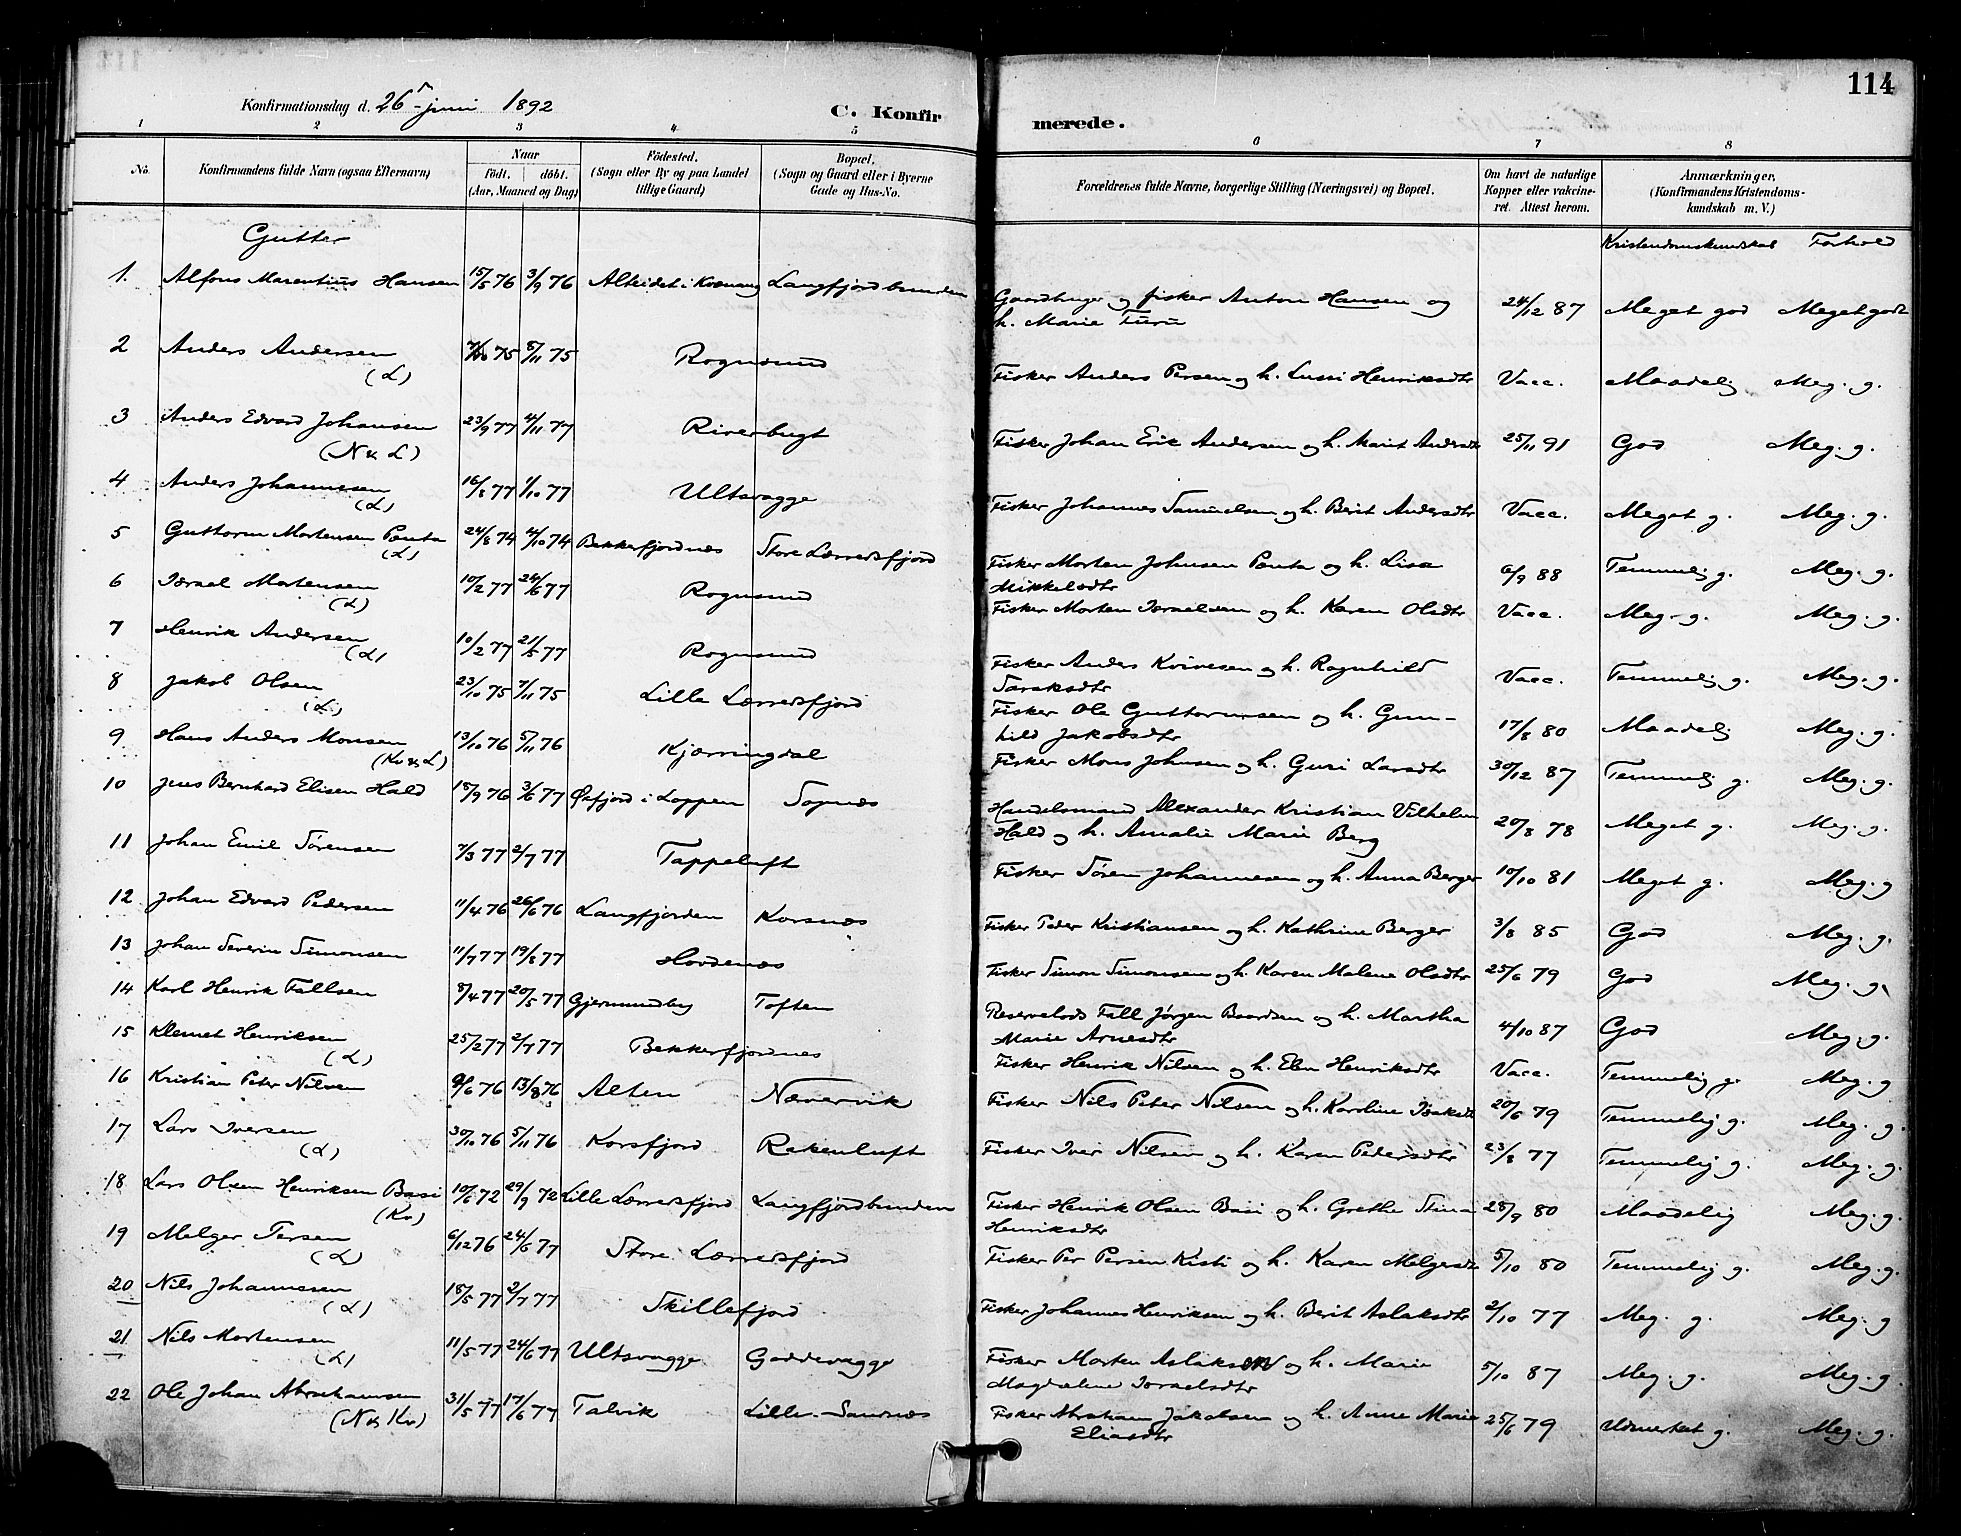 114
Konfirmationsdag d. 26 juni 1892 C. Konfirmerede.
1 2 3 4 5 6 7 8
No. Konfirmandens fulde Navn (ogsaa Efternavn) Naar födt. döbt. (Aar, Maaned og Dag) Födested. (Sogn eller By og paa Landet tillige Gaard) Bopæl. (Sogn og Gaard eller i Byerne Gade og Hus-No. Forældrenes fulde Navne, borgerlige Stilling (Næringsvei) og Bopæl. Om havt de naturlige Kopper eller vakcineret. Attest herom. Anmærkninger, (Konfirmandens Kristendomskundskab m. V.)
Gutter Kristendomskundskab Forhold
1. Alfons Marentius Hansen 15/5 76 3/9 76 Alteidet i Kvænang Langfjordbunden Gaardbruger og fisker Anton Hansen og
h. Marie Furu 24/12 87 Meget god Meget godt
2 Anders Andersen 75 8/11 75 Rognsund
(L) Fisker Anders Persen og h. Lussi Henriksdtr Vacc. Maadelig Meg. g.
3 Anders Edvard Johansen 23/9 77 4/11 77 Riverbugt
(N & L) Fisker Johan Erik Andersen og h. Marit Andersdtr 25/11 91 God Meg. g.
4 Anders Johannesen 16/8 77 1/10 77 Ultsvagge
(L) Fisker Johannes Samuelsen og h. Berit Andersdtr Vacc. Meget g. Meg. g.
5 Guttorm Mortensen Penta 24/8 74 4/10 74 Bekkerfjordnes Store Lærredsfjord
(L) Fisker Morten Johnsen Penta og h. Lisa
Mikkelsdtr 6/9 88 Temmelig g. Meg. g.
6 Israel Mortensen 10/2 77 24/6 77 Rognsund
(L) Fisker Morten Israelsen og h. Karen Olsdtr Vacc. Meg. g. Meg. g.
7 Henrik Andersen 10/2 77 21/5 77 Rognsund
(L) Fisker Anders Kvivesen og h. Ragnhild
Saraksdtr Vacc. Temmelig g. Meg. g.
8 Jakob Olsen 23/10 75 7/11 75 Lille Lærredsfjord
(L) Fisker Ole Guttormsen og h. Gun-
hild Jakobsdtr 17/8 80 Maadelig Meg. g.
9 Hans Anders Monsen 13/10 76 5/11 76 Kjærringdal
(Kv & L) Fisker Mons Johnsen og h. Guri Larsdtr 30/12 87 Temmelig g. Meg. g.
10 Jens Bernhard Elisen Hald 18/9 76 3/6 77 Øxfjord i Loppen Sognæs Handelsmand Alexander Kristian Vilhelm
Hald og h. Amalie Marie Berg 20/8 78 Meget g. Meg. g.
11 Johan Emil Sørensen 7/3 77 2/7 77 Tappeluft Fisker Søren Johannesen og h. Anna Berger 10/10 81 Meget g. Meg. g
12 Johan Edvard Pedersen 11/4 76 26/6 76 Langfjorden Korsnæs Fisker Peder Kristiansen og h. Kathrine Berger 3/8 85 God Meg. g.
13 Johan Severin Simonsen 11/7 77 19/8 77 Hordenæs Fisker Simon Simonsen og h. Karen Malene Olsdtr 25/6 79 God Meg. g.
14 Karl Henrik Fallsen 8/4 77 20/5 77 Gjermundby Toften Reservelods Fall Jørgen Baardsen og h. Martha
Marie Arnesdtr 4/10 87 God Meg. g.
15 Klemet Henriksen 25/2 77 2/7 77 Bekkerfjordnes
(L) Fisker Henrik Nilsen og h. Elen Henriksdtr Vacc. Temmelig g. Meg. g
16 Kristian Peter Nilsen 76 13/8 76 Alten Nævervik Fisker Nils Peter Nilsen og h. Karoline Isaksdtr 20/6 79 Temmelig g. Meg. g.
17 Lars Iversen 30/10 76 5/11 76 Korsfjord Rekenluft
(L) Fisker Iver Nilsen og h. Karen Pedersdtr 23/8 77 Temmelig g. Meg. g.
18 Lars Olsen Henriksen Basi 10/6 72 29/9 72 Lille Lærredsfjord Langfjordbunden
(Kv) Fisker Henrik Olsen Basi og h. Grethe Stina
Henriksdtr 28/9 80 Maadelig Meg. g.
19 Melger Persen 6/12 76 24/6 77 Store Lærredsfjord
(L) Fisker Per Persen Kisti og h. Karen Melgersdtr 5/10 80 Temmelig g. Meg. g.
20 Nils Johannesen 18/5 77 2/7 77 Skillefjord
(L) Fisker Johannes Henriksen og h. Berit Aslaksdtr 2/10 77 Meg. g. Meg. g
21 Nils Mortensen 11/5 77 24/6 77 Ultsvagge Goddevagge
(L) Fisker Morten Aslaksen og h. Marie
Magdalene Israelsdtr 5/10 87 Meg. g. Meg. g.
22 Ole Johan Abrahamsen 31/5 77 17/6 77 Talvik Lille-Sandnæs
(N & Kv) Fisker Abraham Jakobsen og h. Anne Marie
Eliasdtr 25/6 79 Udmerket g. Meg. g.